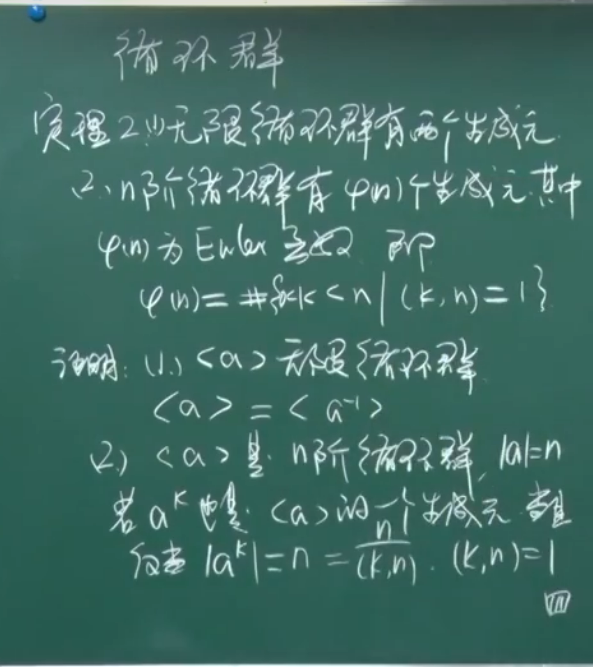 循环群
定理2.(1)无限循环群有两个生成元.
(2). n阶循环群有 φ(n)个生成元.其中
φ(n)为 Euler 函数 即
φ(n)=#{k<n|(k,n)=1}.
证明:(1.) <a>无限循环群
<a>=<a⁻¹>
(2.) <a>是 n阶循环群, |a|=n
若 aᵏ也是 <a>的一个生成元 当且
仅当 |aᵏ|=n=n/(k,n). (k,n)=1